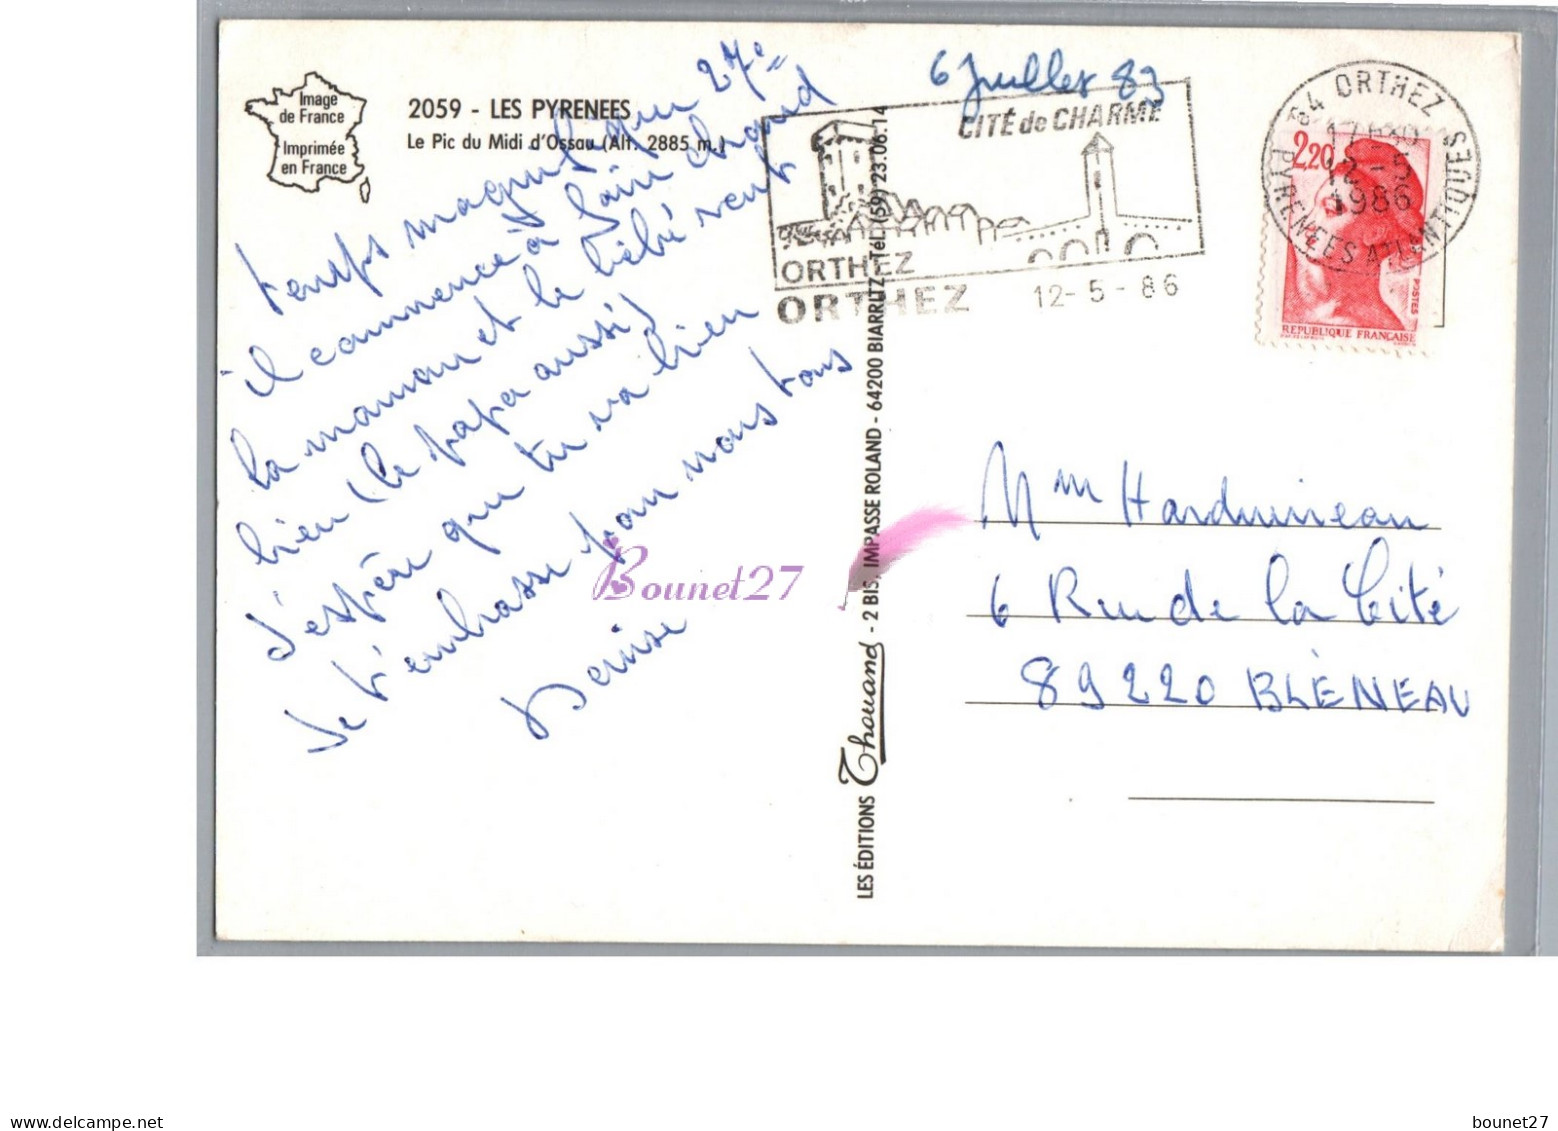 Image
de France
Imprimée
en France
2059 - LES PYRENEES
Le Pic du Midi d'Ossau (Alt. 2885 m.)
temps magnifique 27°
il commence à faire chaud
la maman et le bébé vont
bien (le papa aussi)
J'espère que tu va bien
Je t'embrasse pour nous tous
Denise
6 Juillet 89
CITÉ de CHARME
ORTHEZ
ORTHEZ 12-5-86
64 ORTHEZ
12-5
1986
PYRENEES ATLANTIQUES
2,20
POSTES
REPUBLIQUE FRANÇAISE
LES ÉDITIONS Thouand - 2 BIS, IMPASSE ROLAND - 64200 BIARRITZ - Tél. (59) 23.06.14
Mme Harduineau
6 Rue de la Cité
89220 BLÉNEAU
Bounet27
bounet27